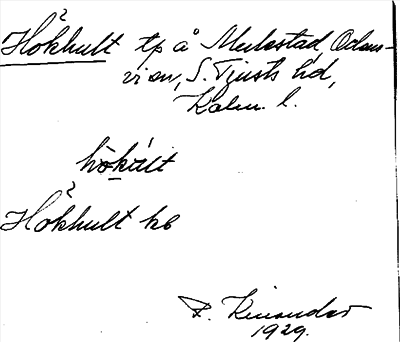 Hökhult tp å Mulestad, Odens-
vi sn, S. Tjusts hd,
Kalm. l.
hö̀kúlt
Hökhult kb
R. Kinander
1929.